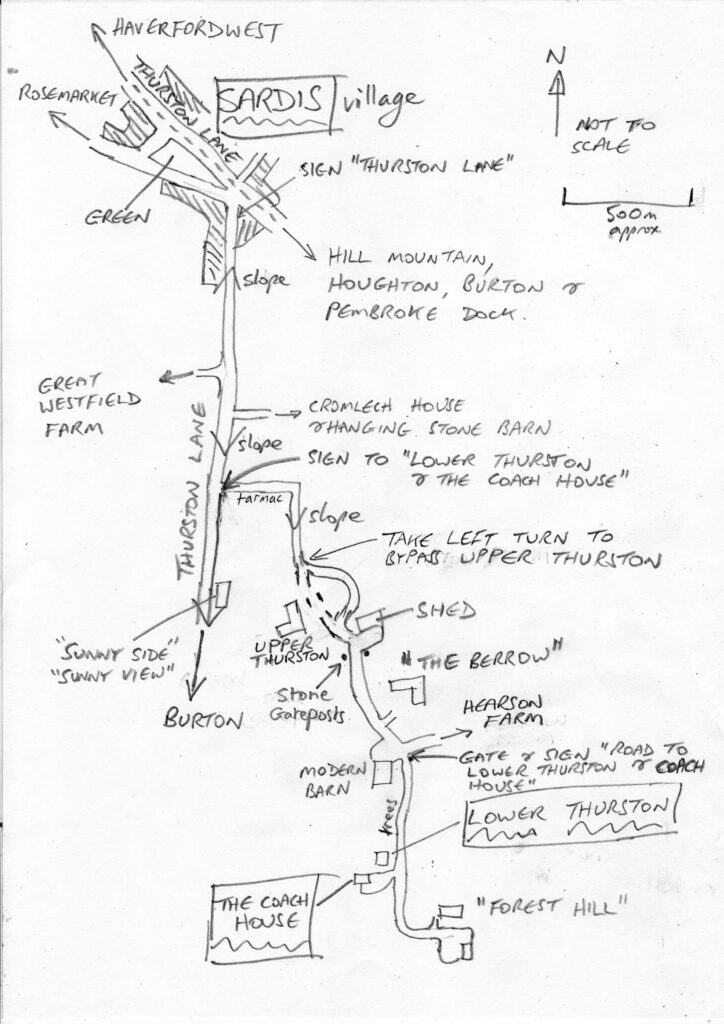 HAVERFORDWEST
N
THURSTON LANE
ROSEMARKET
SARDIS village
NOT TO
SCALE
SIGN "THURSTON LANE"
GREEN
500m
approx.
HILL MOUNTAIN,
HOUGHTON, BURTON &
PEMBROKE DOCK.
slope
GREAT
WESTFIELD
FARM
CROMLECH HOUSE
& HANGING STONE BARN
slope
THURSTON LANE
SIGN TO "LOWER THURSTON
& THE COACH HOUSE"
tarmac
slope
TAKE LEFT TURN TO
BYPASS UPPER THURSTON
SHED
"SUNNY SIDE"
"SUNNY VIEW"
UPPER
THURSTON
"THE BERROW"
Stone
Gateposts
BURTON
HEARSON
FARM
MODERN
BARN
GATE & SIGN "ROAD TO
LOWER THURSTON & COACH
HOUSE"
trees
LOWER THURSTON
THE COACH
HOUSE
"FOREST HILL"